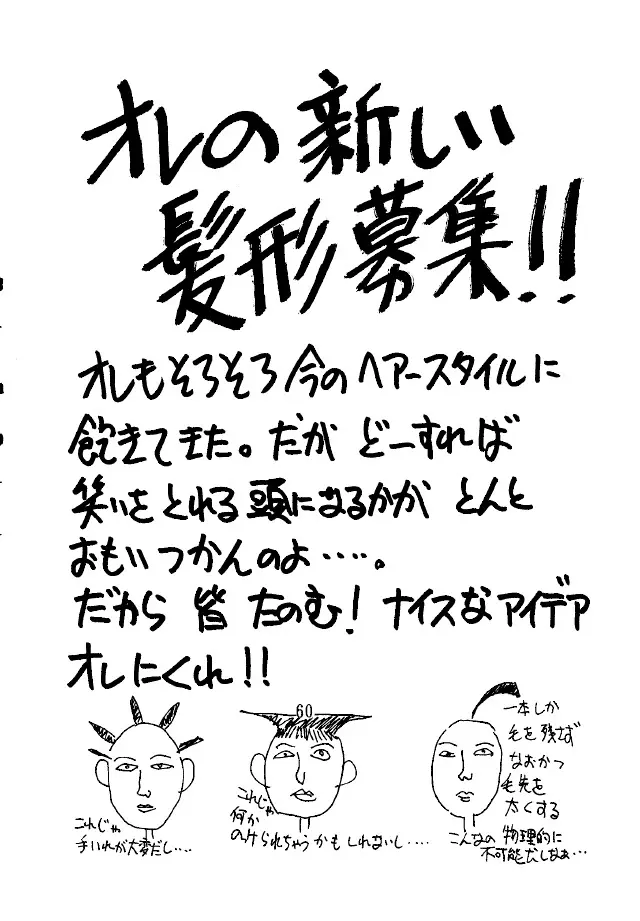 オレの新しい
髪形募集!!
オレもそろそろ今のヘアースタイルに
飽きてきた。だが どーすれば
笑いをとれる頭になるかが とんと
おもいつかんのよ……。
だから 皆 たのむ! ナイスなアイデア
オレにくれ!!
これじゃ
手いれが大変だし....
60
これじゃ
何か
のけられちゃうかもしれないし....
一本しか
毛を残さず
なおかつ
毛先を
太くする
こんなの 物理的に
不可能だしなぁ...